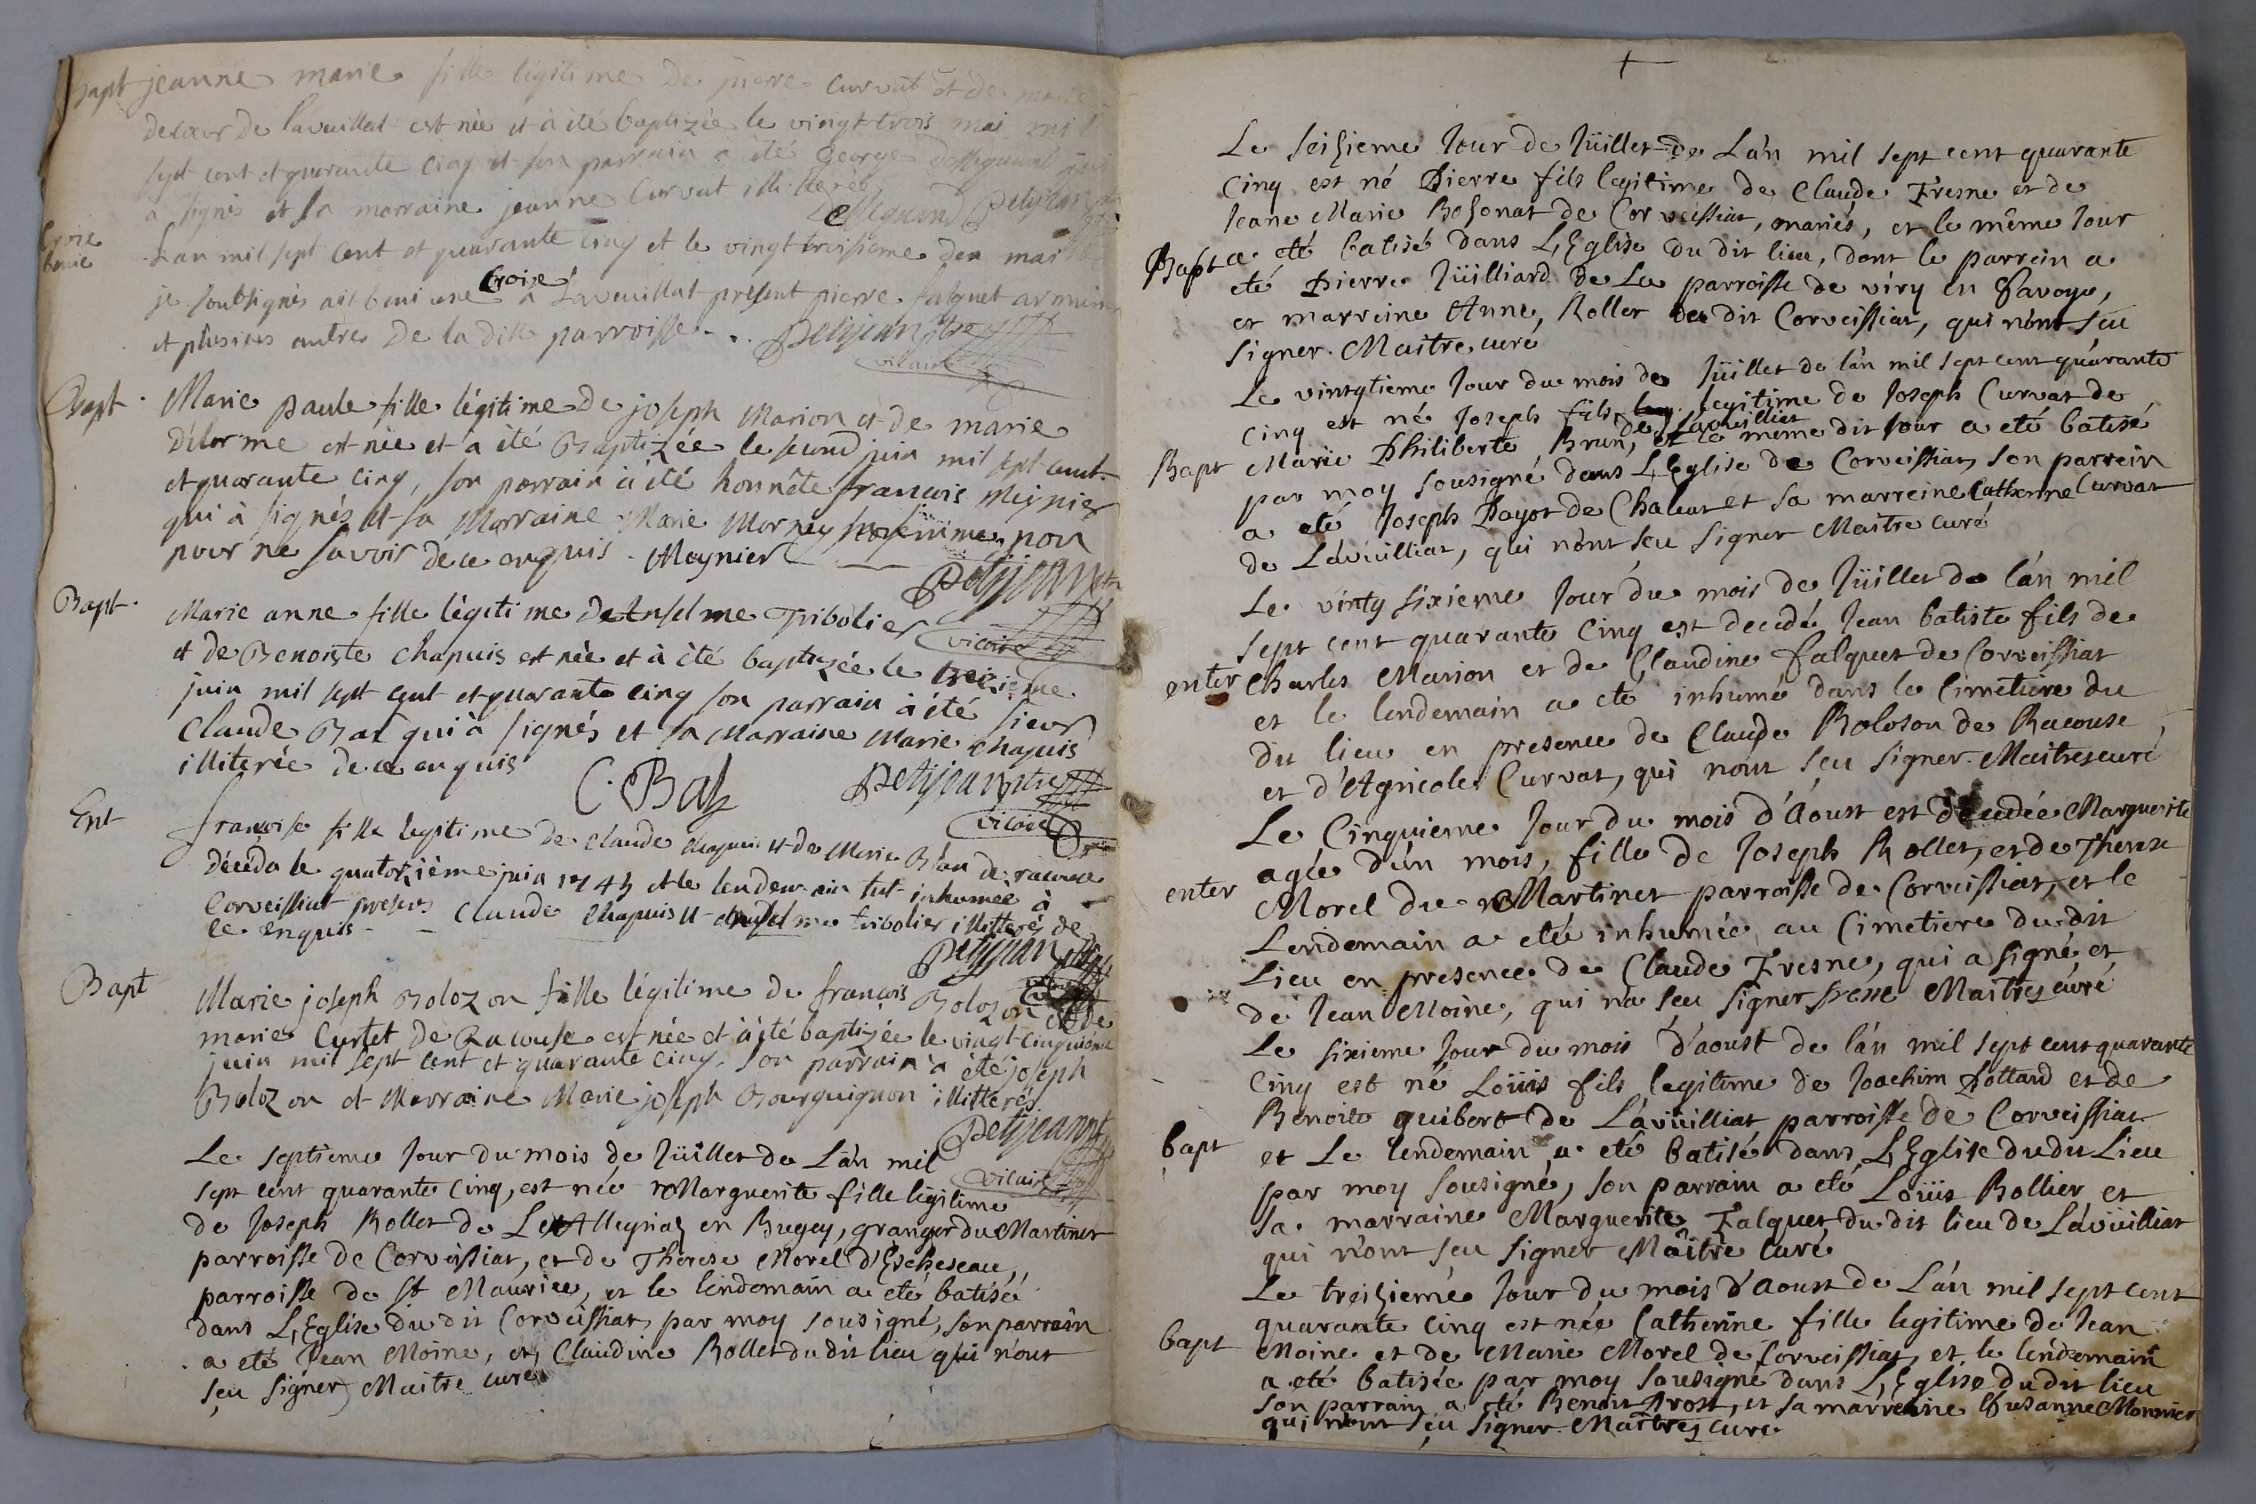 Bapt jeanne marie fille légitime de pierre curvat et de marie
delcœur de lavuillat est née et à été baptizée le vingt trois mai mil
sept cent et quarante cinq et son parrain a été george qui
a signés et sa marraine jeanne Curvat illiterée
Petitjean
Croix
benie
Lan mil sept Cent et quarante Cinq et le vingt troisieme de mai
je soubsignés ait beni une Croix à Lavouillat present pierre falquet
et plusieurs autres de la dille parroisse . . Petitjean ptre
vicaire
Bapt . Marie paule fille légitime de joseph Marion et de marie
Délorme est née et a été Baptizée le second juin mil sept cent
et quarante cinq, son parrain à été honnête françois Meynier
qui à signés et sa Marraine Marie Mornay non
pour ne savoir de ce enquis . Meynier
Petitjean ptre
vicaire
Bapt . Marie anne fille légitime de Anselme Tribolier
et de Benoiste Chapuis est née et à été baptizée le treizieme
juin mil sept cent et quarante cinq son parrain à été sieur
Claude Bas qui à signés et sa Marraine Marie Chapuis
illiterée de ce enquis
C. Bas Petitjean ptre
vicaire
Ent françoise fille legitime de Claude Chapuis et de Marie Blan de racouse
décéda le quatorzième juin 1745 et le lendemain fut inhumée à
Corveissiat presens Claude Chapuis et Anselme tribolier illitterés de
ce enquis
Petitjean ptre
Bapt Marie joseph Bolozon fille légitime de françois Bolozon et de
marie Curtet de Racouse est née et à été baptizée le vingt cinquiéme
juin mil sept cent et quarante cinq. Son parrain à été joseph
Bolozon et Marraine Marie joseph Bourguignon illitterés
Petitjean ptre
vicaire
Le septieme Jour du mois de Jüillet de L'an mil
sept cent quarante Cinq, est née Marguerite fille légitime
de Joseph Rollet de Let Allegriaz en Bugey, granger du Martinet
parroisse de Corveissiat, et de Therese Morel d'Escheseau,
parroisse de St Maurice, et le lendemain a eté batisé
dans L'Eglise du dit Corveissiat par moy sousigné, son parrain
a eté Jean Moine, et Claudine Rollet du dit lieu qui n'ont
sçu signer, Maitre curé
Le seizieme Jour de Jüillet de L'an mil sept cent quarante
Cinq est né Pierre fils legitime de Claude Fresne et de
Jeane Marie Bosonat de Corveissiat, mariés, et le même Jour
Bapt a eté batisé dans L'Eglise du dit lieu, dont le parrein a
eté Pierre Jüilliard de La parroisse de viry en Savoye,
et marreine Anne Rollet du dit Corveissiat, qui n'ont sçu
signer. Maitre curé
Le vintgtieme Jour du mois de Jüillet de l'an mil sept cent quarante
Cinq est né Joseph fils legitime de Joseph Curvat de
de Lavuilliat
Bapt Marie Philiberte Brun, et le même dit Jour a eté batisé
par moy sousigné dans L'Eglise de Corveissiat, son parrein
a eté Joseph Payot de Chaleat et sa marreine Catherine Curvat
de Lavüilliat, qui n'ont sçu signer Maitre curé
Le vinty sixieme Jour du mois de Jüillet de l'an mil
sept cent quarante Cinq est decedé Jean batiste fils de
enter Charles Marion et de Claudine Falquet de Corveissiat
et le lendemain a eté inhumé dans le Cimetiere du
dit lieu en presence de Claude Boloson de Racouse
et d'Agricole Curvat, qui n'ont sçu signer. Maitre curé
Le Cinquieme Jour du mois d'Aoust est decedée Marguerite
agée d'un mois, fille de Joseph Rollet, et de Therese
enter Morel du Martinet parroisse de Corveissiat, et le
Lendemain a eté inhumée au Cimetiere du dit
Lieu en presence de Claude Fresne, qui a signé et
de Jean Moine, qui n'a sçu signer fresne Maitre curé
Le sixieme Jour du mois d'aoust de l'an mil sept cent quarante
Cinq est né Loüis fils legitime de Joachim Pottard et de
Benoite guibert de Lavüilliat parroisse de Corveissiat
bapt et Le lendemain a eté batisé dans L'Eglise du dit Lieu
par moy sousigné, son parrain a eté Loüis Rollier et
sa marraine Marguerite Falquet du dit lieu de Lavüilliat
qui n'ont sçu signer Maître Curé
Le treizieme Jour du mois d'aoust de L'an mil sept cent
quarante Cinq est née Catherine fille legitime de Jean
bapt Moine et de Marie Morel de Corveissiat, et le lendemain
a eté batisée par moy sousigné dans L'Eglise du dit lieu
son parrain a eté Benoit Prost, et sa marreine Susanne Monnier
qui n'ont sçu signer. Maitre, curé